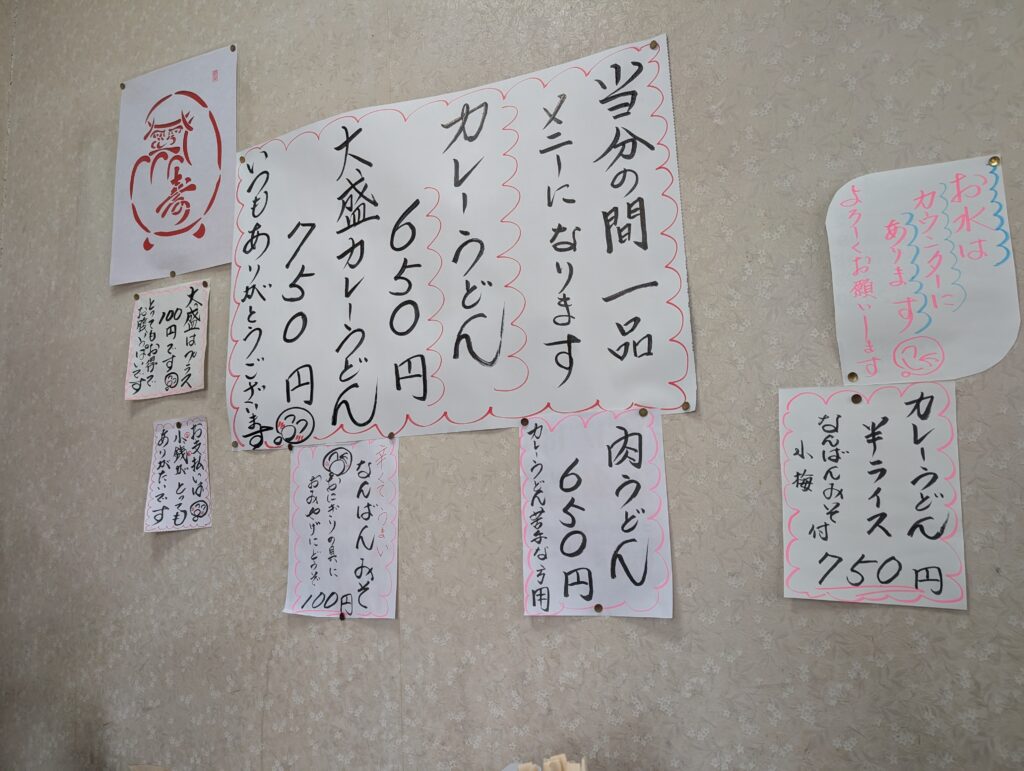 当分の間一品
メニーになります
カレーうどん
650円
大盛カレーうどん
750円
いつもありがとうございます
寿
大盛はプラス
100円です
とってもお得で
お腹いっぱいです
お支払いは
小銭がとっても
ありがたいです
辛くてうまい
なんばんみそ
おにぎりの具に
おみやげにどうぞ
100円
肉うどん
650円
カレーうどん苦手な方用
お水は
カウンターに
あります
よろしくお願いします
カレーうどん
半ライス
なんばんみそ付
小梅
750円